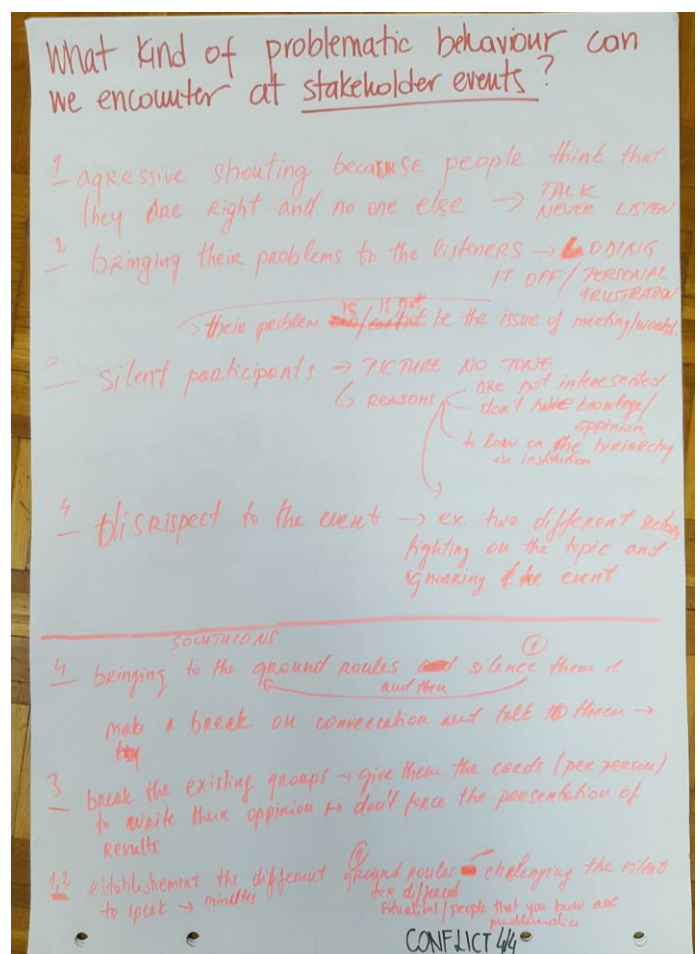 What kind of problematic behaviour can
we encounter at stakeholder events?
1 agressive shouting because people think that
they are right and no one else → TALK
NEVER LISTEN
2 bringing their problems to the listeners → LODING
IT OFF / PERSONAL
FRUSTRATION
→ their problem is / is not be the issue of meeting/
3 silent participants → PICTURE NO TONE
↳ REASONS
are not interested
don't have knowlege/
oppinion
to low on the hieirechy
in institution
4 disrispect to the event → ex. two different sectors
fighting on the topic and
ignoaring the event
SOLUTIONS
4 bringing to the ground roules silence them 1.
and then
1
make a break on conversation and talk to them →
3 break the existing groups → give them the cards (per person)
to write their oppinion → don't force the presentation of
results
1,2 establishement the different ground roules chalenging the silent
1
to speak → minutes
for different
situations / people that you know are
problematic
CONFLICT 4/4